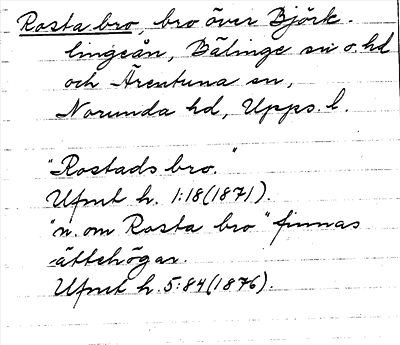 Rosta bro, bro över Björk-
lingeån, Bälinge sn o. hd
och Ärentuna sn,
Norunda hd, Upps. l.
"Rostads bro."
Ufmt h. 1:18 (1871).
"n. om Rosta bro" finnas
ättehögar.
Ufmt h. 5:84 (1876).